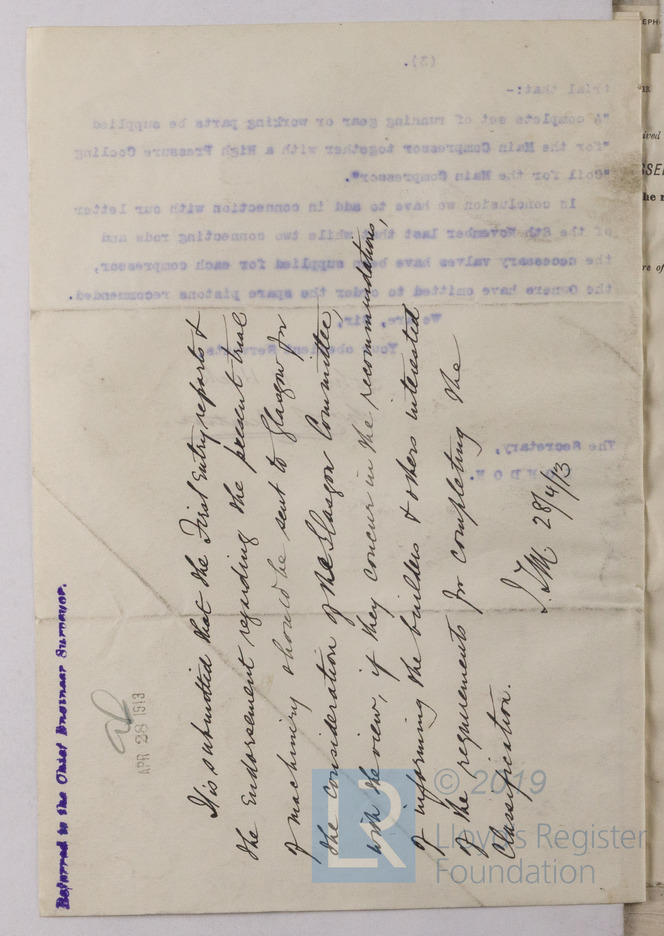 Referred to the Chief Engineer Surveyor.
APR 28 1913
It is submitted that the First Entry reports &
the Endorsement regarding the present trial
of machinery should be sent to Glasgow for
the consideration of the Glasgow Committee,
with the view, if they concur in the recommendations,
of informing the builders & others interested
of the requirements for completing the
Classification.
28/4/13
(3).
trial that:-
"A complete set of running gear or working parts be supplied
"for the Main Compressor together with a High Pressure Cooling
"Coil for the Main Compressor".
In conclusion we have to add in connection with our letter
of the 8th November last that while two connecting rods and
the necessary valves have been supplied for each compressor,
the Owners have omitted to order the spare pistons recommended.
We are, Sir,
Your obedient Servants
The Secretary,
LONDON.
LR
© 2019
Lloyd's Register
Foundation